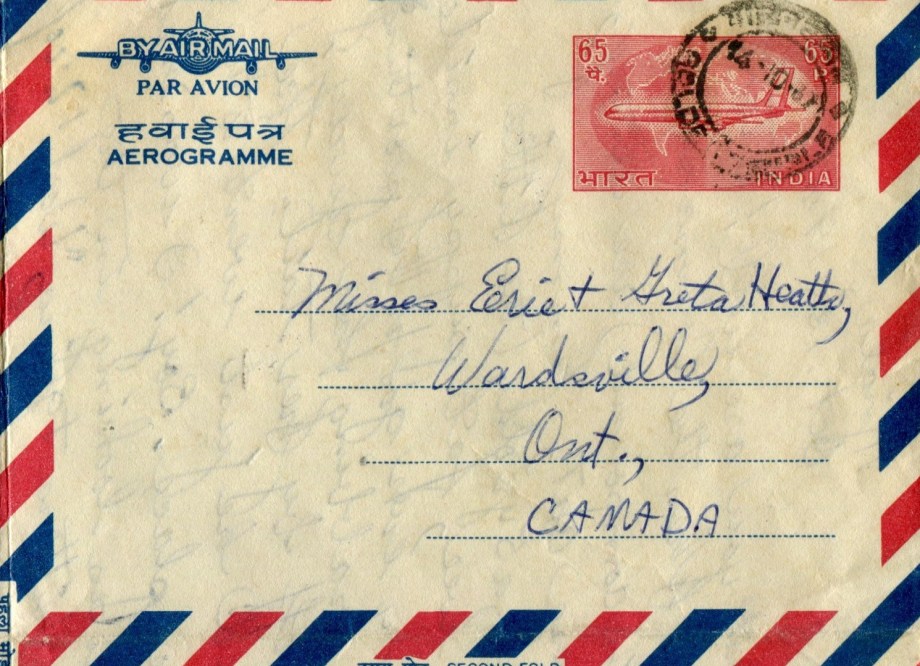 BY AIR MAIL
PAR AVION
हवाई पत्र
AEROGRAMME
65 65
पै. P.
भारत INDIA
Misses Erie + Greta Heath,
Wardsville,
Ont.,
CANADA
SECOND FOLD